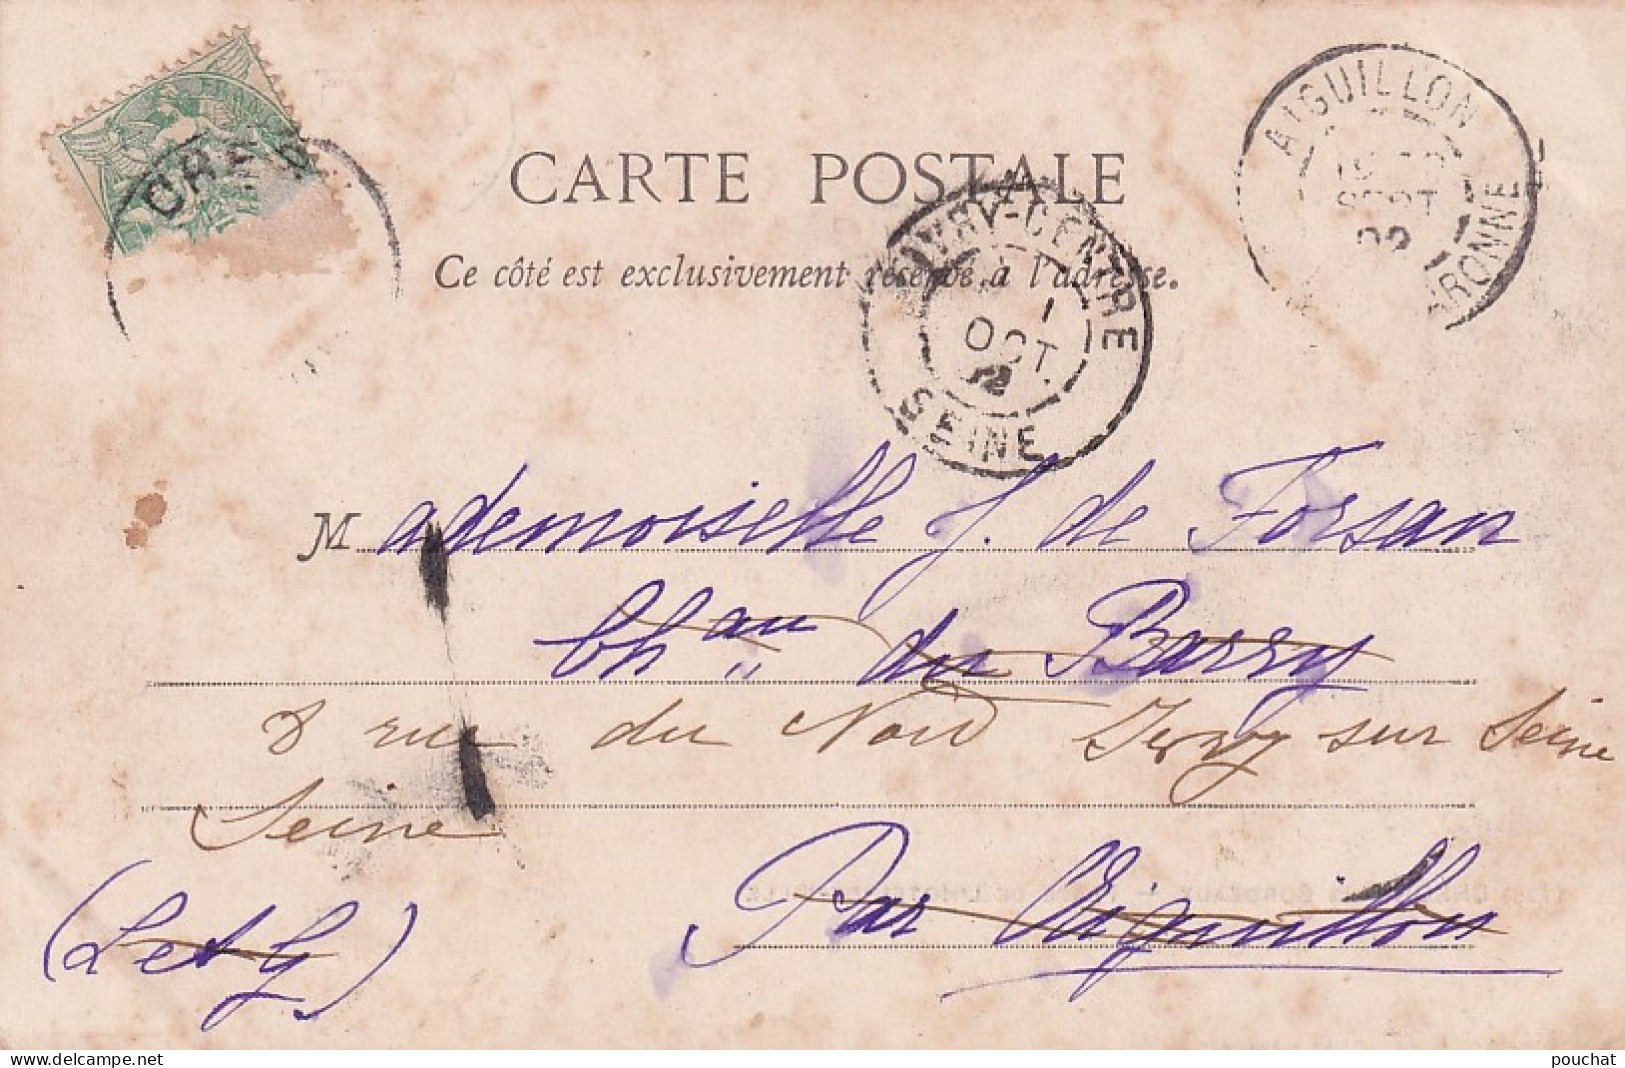 CARTE POSTALE
Ce côté est exclusivement réservé à l'adresse.
AIGUILLON
SEPT
02
IVRY-CENTRE
1
OCT
SEINE
Mademoiselle J. de Forsan
Chau du Barry
8 rue du Nord Ivry sur Seine
Seine
Par Aiguillon
(L et G)
www.delcampe.net
pouchat